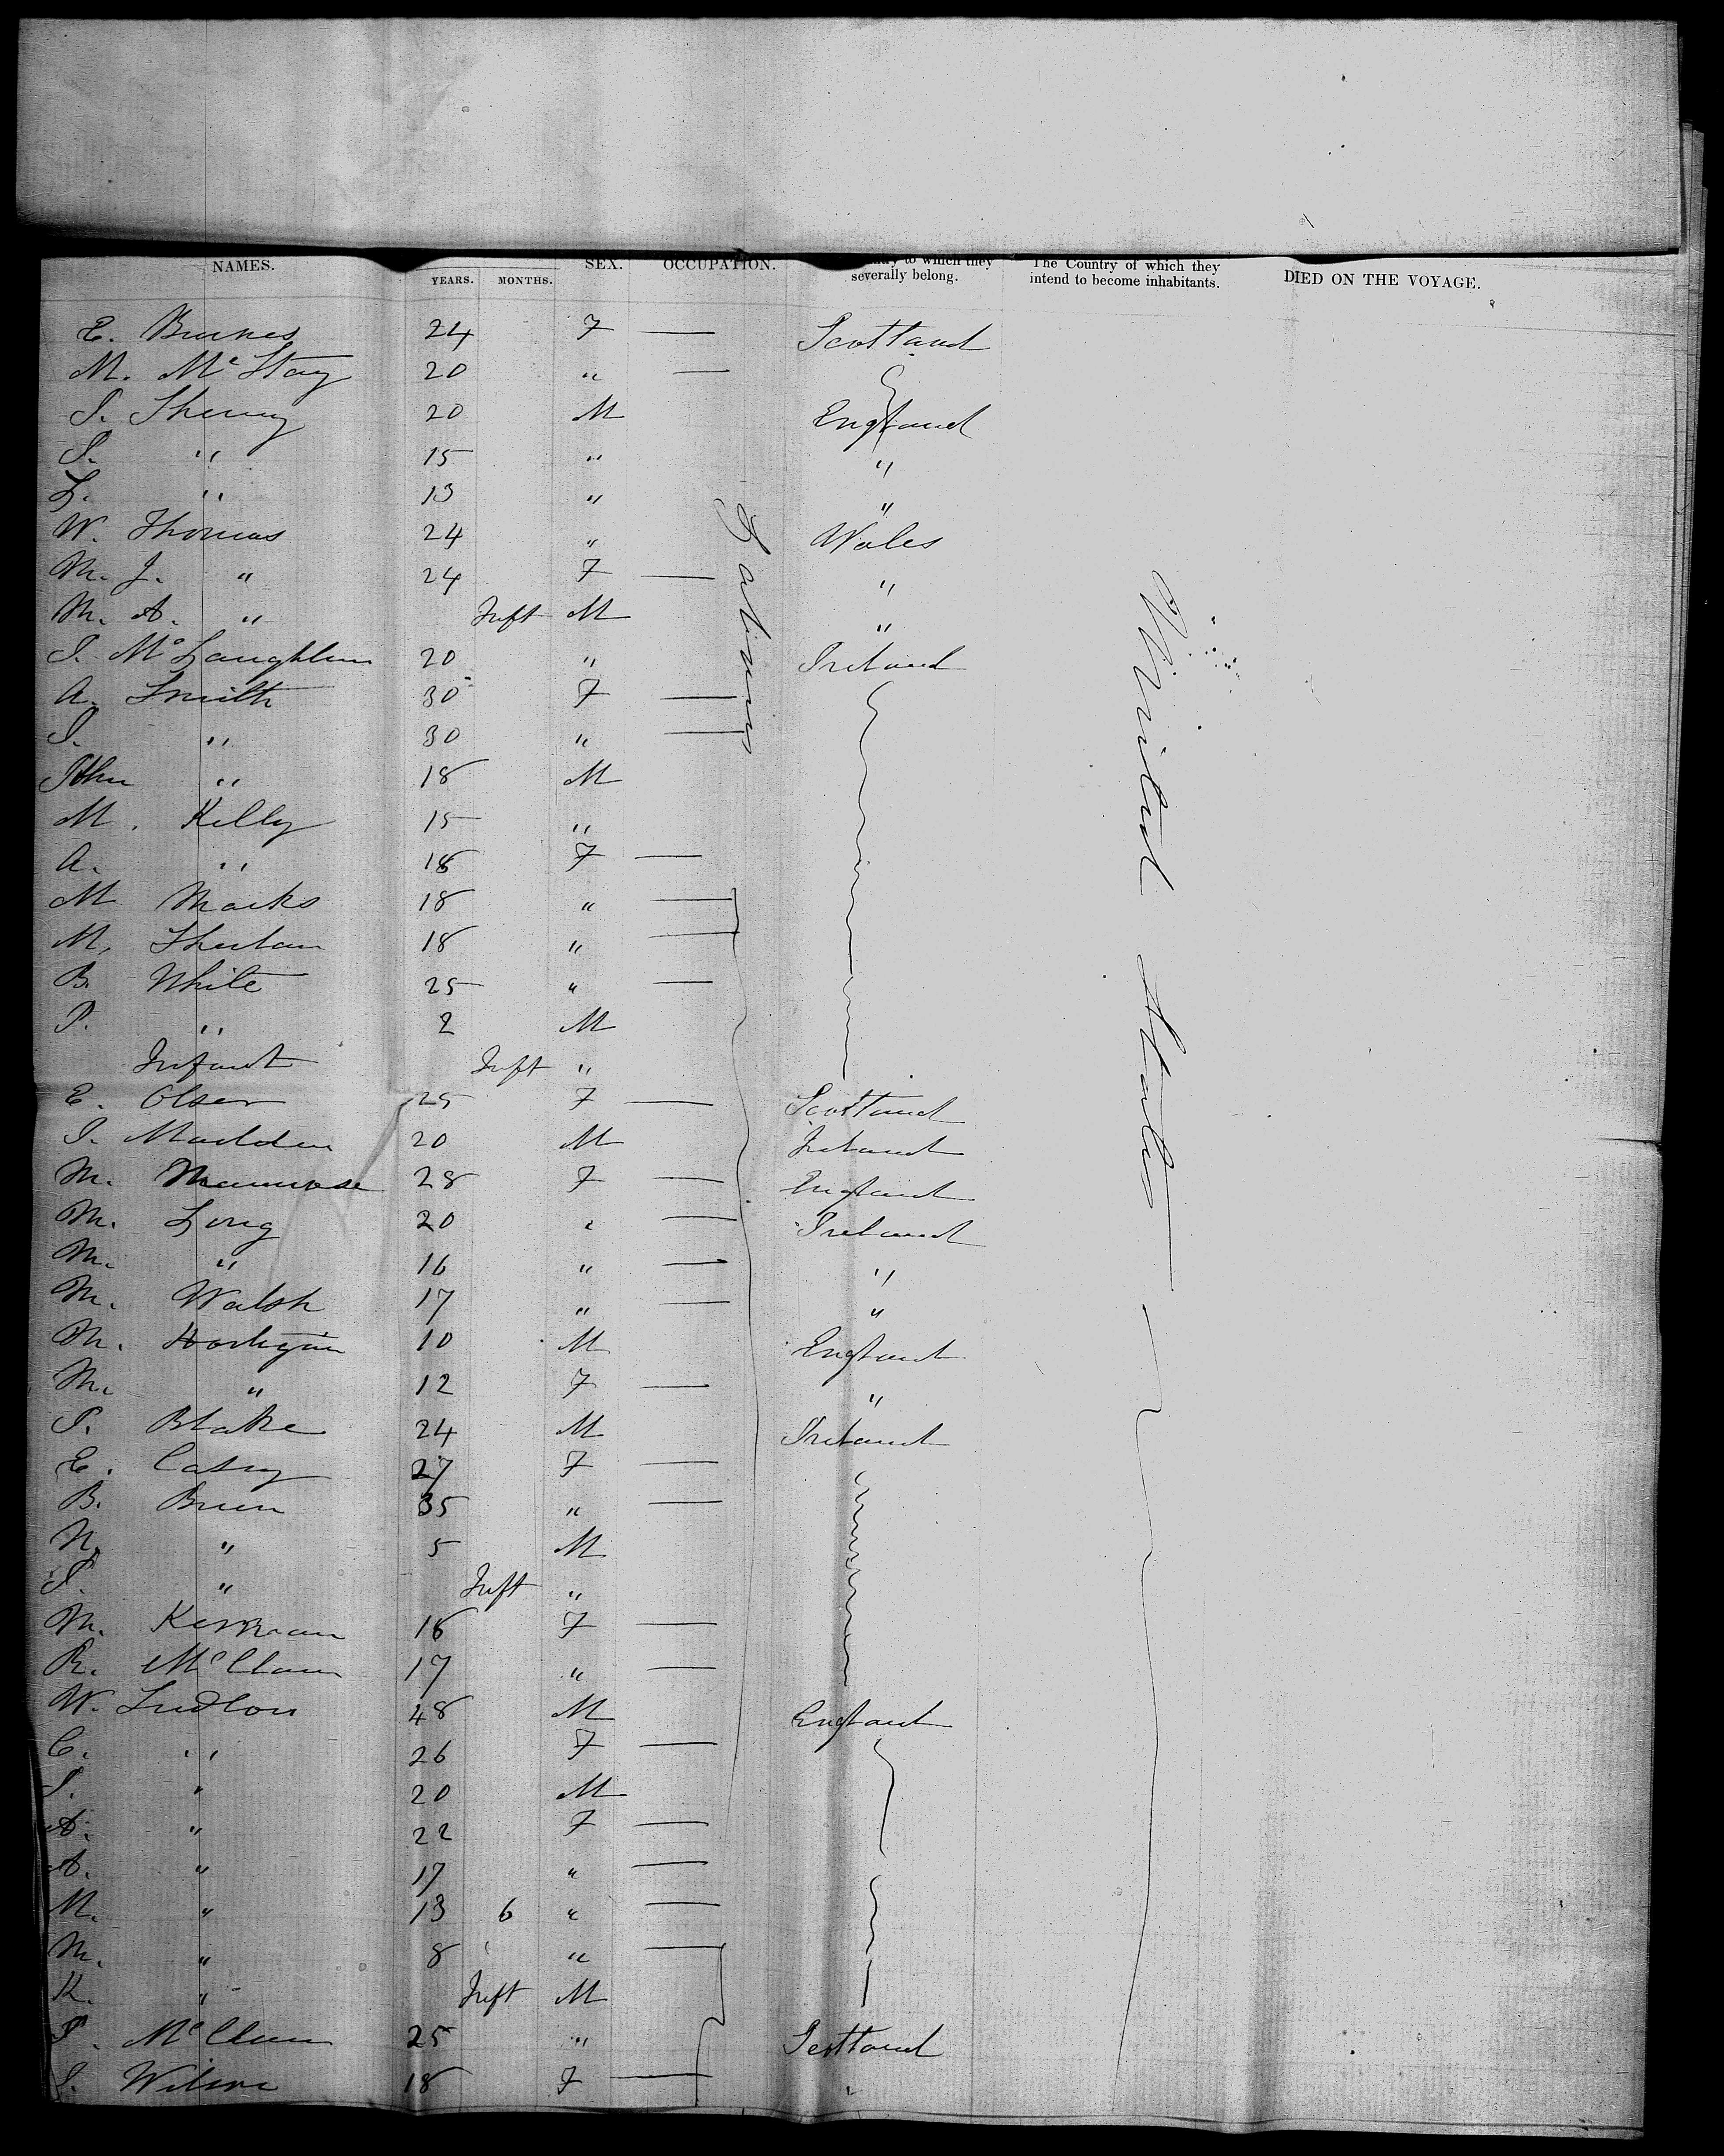 NAMES. YEARS. MONTHS. SEX. OCCUPATION. to which they severally belong. The Country of which they intend to become inhabitants. DIED ON THE VOYAGE.
E. Burnes 24 F — Scotland
M. McStay 20 " —
20 M England
S. " 15 " "
L. " 13 " "
W. Thomas 24 " Wales
M. J. " 24 F — "
M. A. " Inft M "
J. McLaughlin 20 " Ireland
A. Smith 30 F —
S. " 30 " —
John " 18 M
M. Kelly 15 "
A. " 18 F —
M Marks 18 " —
M. 18 " —
B. White 25 " —
P. " 2 M
Infant Inft "
E. Olsen 25 F — Scotland
J. Madden 20 M Ireland
M. 28 F — England
M. Long 20 " — Ireland
M. " 16 " — "
M. Walsh 17 " — "
M. 10 M England
M. " 12 F — "
P. Blake 24 M Ireland
E. Casey 27 F —
B. 35 " —
N. " 5 M
P. " Inft "
M. 16 F —
R. 17 " —
W. Ludlow 48 M England
C. " 26 F —
J. " 20 M
A. " 22 F —
A. " 17 " —
M. " 13 6 " —
M. " 8 " —
K. " Inft M
25 " Scotland
18 F — "
United States